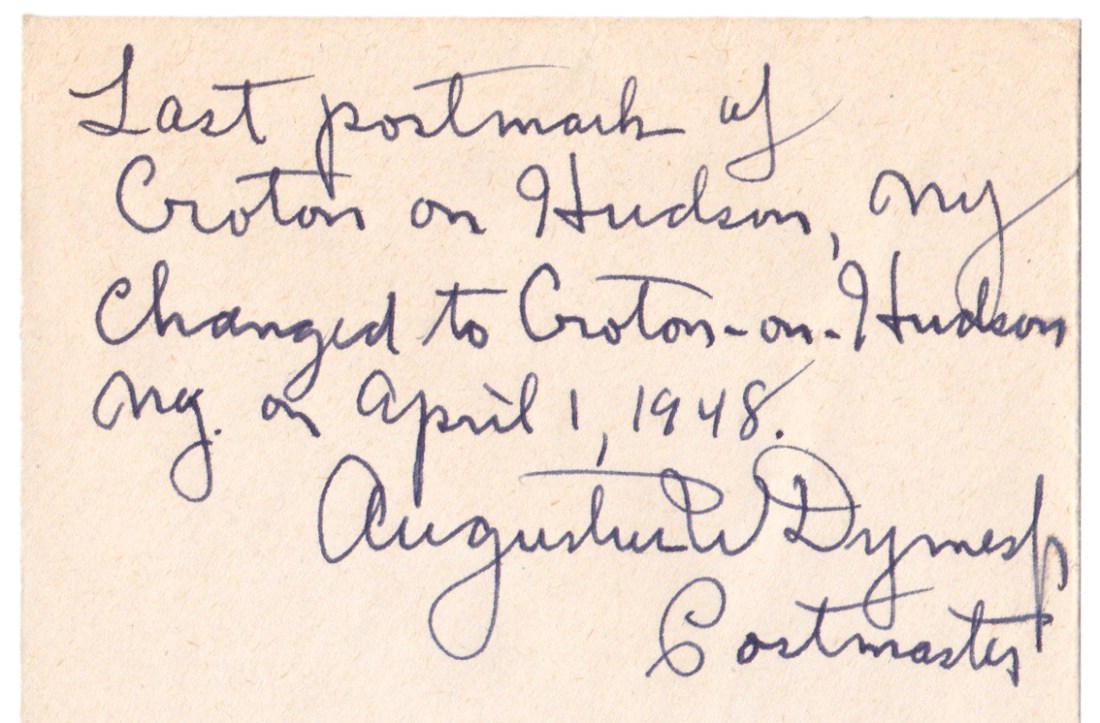 Last postmark of
Croton on Hudson, NY
Changed to Croton-on-Hudson
Ny. on April 1, 1948.
Augustus W Dymes Jr
Postmaster